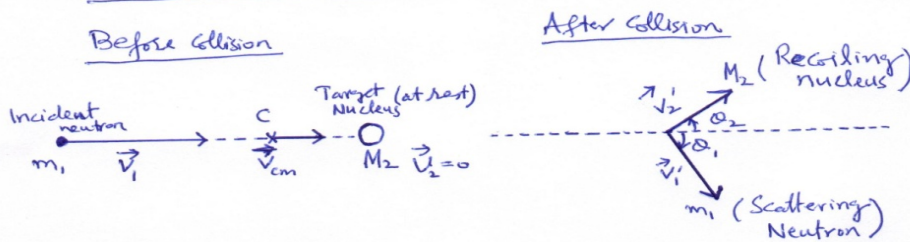 Before Collision
Incident
neutron
m₁
V⃗₁
C
V⃗cm
Target (at rest)
Nucleus
M₂ V⃗₂=0
After Collision
M₂ (Recoiling
nucleus)
V⃗₂'
θ₂
θ₁
V⃗₁'
m₁ (Scattering
Neutron)